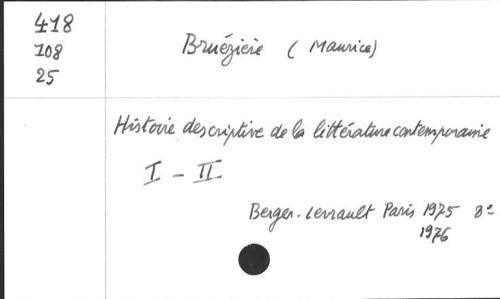 418
108
25
Bruézière ( Maurice)
Histoire descriptive de la littérature contemporaine
I - II
Berger-Levrault Paris 1975 8º
1976